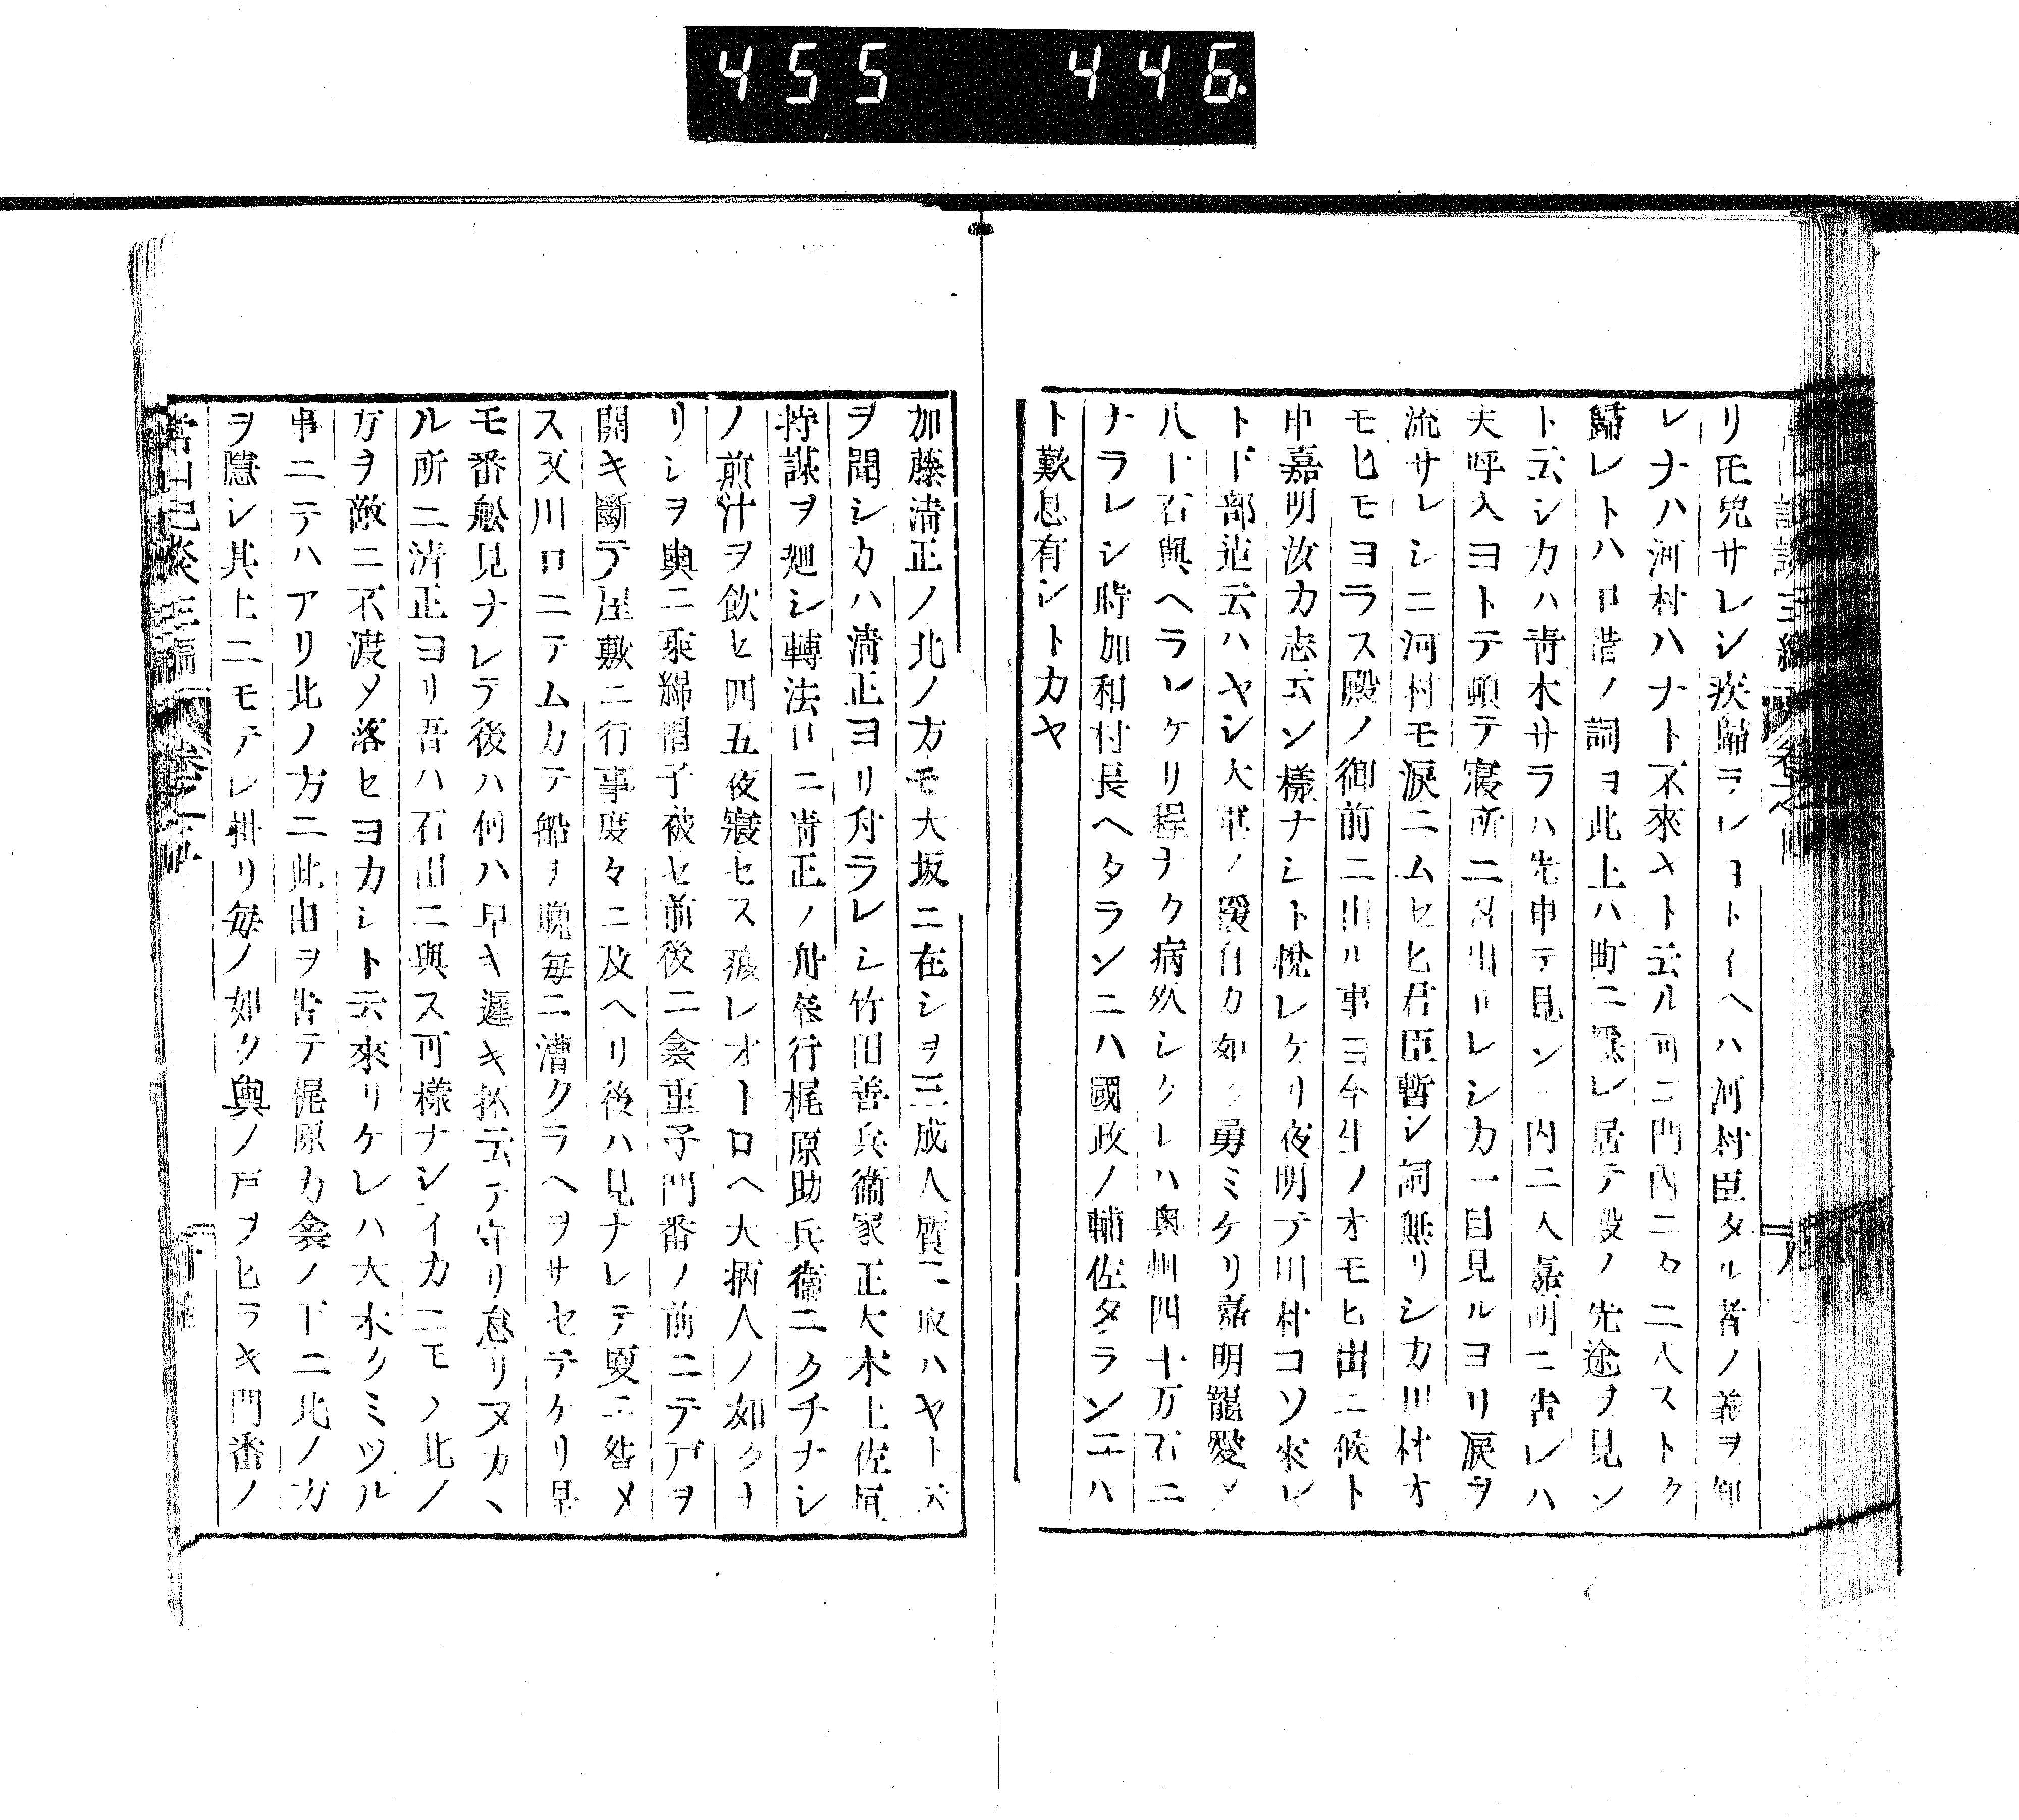 455 446
リ圧免サレシ疾歸テレヨトイヘハ河村臣タル者ノ義ヲ知
レナハ河村ハナト不來ヤト云ル可ニ門内ニタ二人ストク
歸レトハ口惜ノ詞ヲ此上ハ町ニ隱レ居テ殿ノ先途ヲ見ン
ト云シカハ青木サラハ先申テ見ン内ニ入嘉明ニ告レハ
夫呼入ヨトテ頓テ寢所ニ出ラレシカ一目見ルヨリ涙ヲ
流サレシニ河村モ涙ニムセヒ君臣暫シ詞無リシカ川村オ
モヒモヨラス殿ノ御前ニ出ル事ヨ今生ノオモヒ出ニ候ト
申嘉明汝カ志云ン樣ナシト悅レケリ夜明テ川村コソ來レ
ト下部迄云ハヤシ大軍ノ援自カ如ク勇ミケリ嘉明寵愛メ
八十石與ヘラレケリ程ナク病死シクレハ奥州四十万石ニ
ナラレシ時加和村長ヘタランニハ國政ノ輔佐タランニハ
ト歎息有シトカヤ
加藤清正ノ北ノ方モ大坂ニ在シヲ三成人質ニ取ハヤト云
ヲ聞シカハ清正ヨリ舟ラレシ竹田善兵衞家正大木土佐
持謀ヲ廻シ轉法口ニ清正ノ舟奉行梶原助兵衞ニクチナシ
ノ煎汁ヲ飲セ四五夜寢セス疲レオトロヘ大病人ノ如クナ
リシヲ輿ニ乘綿帽子被セ前後ニ衾重子門番ノ前ニテ戸ヲ
開キ斷テ屋敷ニ行事度々ニ及ヘリ後ハ見ナレテ更ニ咎メ
ス又川口ニテムカテ船ヲ晩毎ニ漕クラヘヲサセテケリ是
モ番舩見ナレテ後ハ何ハ早キ遲キ抔云テ守リ怠リヌカヽ
ル所ニ清正ヨリ吾ハ石田ニ與ス可樣ナシイカニモノ北ノ
方ヲ敵ニ不渡メ落セヨカシト云來リケレハ大木クミツル
事ニテハアリ北ノ方ニ此由ヲ告テ梶原カ衾ノ下ニ北ノ方
ヲ隱シ其上ニモテレ掛リ毎ノ如ク輿ノ戸ヲヒラキ門番ノ
常山紀談三編 卷之二